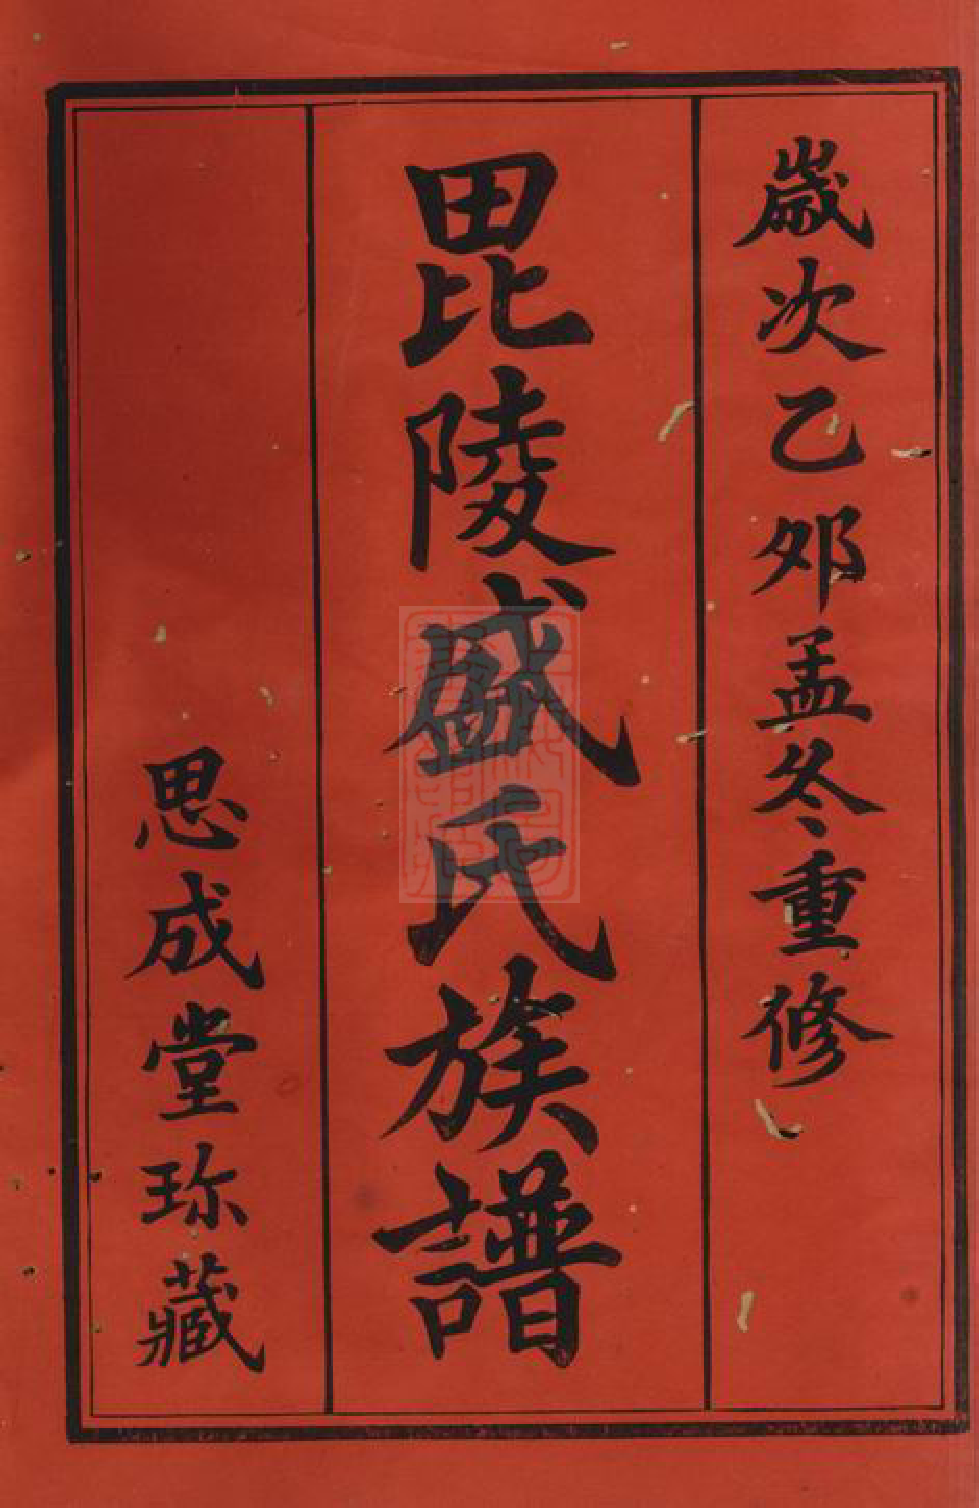 歲次乙卯孟冬重修
毘陵盛氏族譜
思成堂珎藏